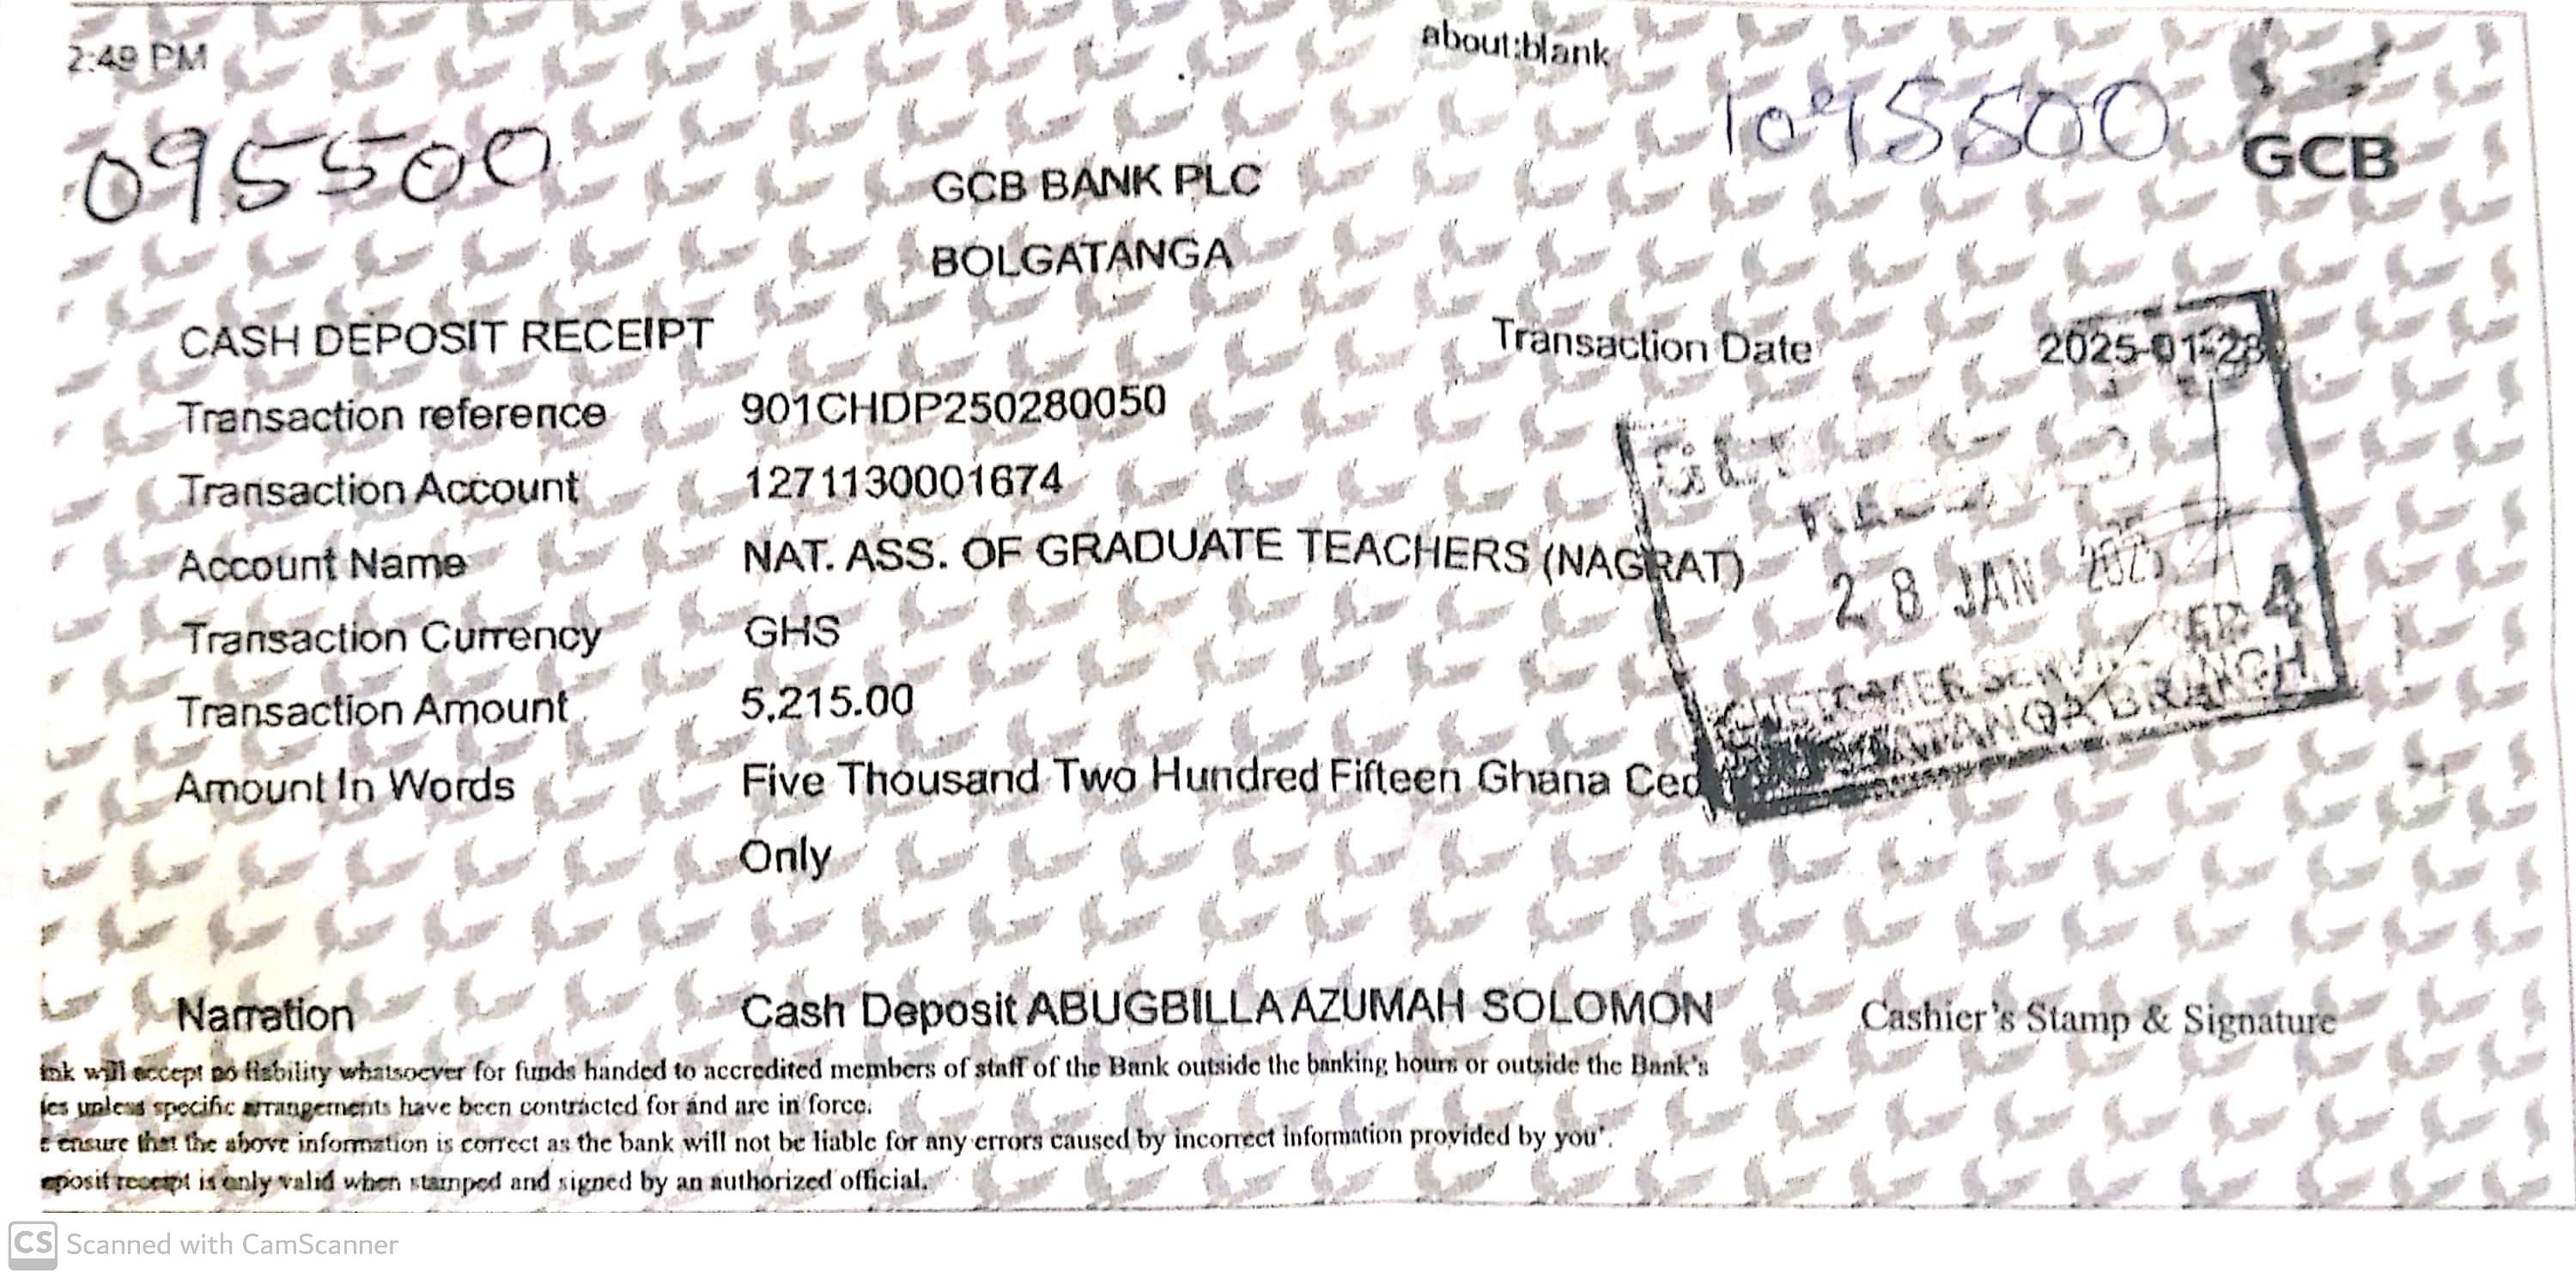 2:49 PM
about:blank
095500
1095500
GCB
GCB BANK PLC
BOLGATANGA
CASH DEPOSIT RECEIPT
Transaction Date 2025-01-28
Transaction reference 901CHDP250280050
Transaction Account 1271130001674
Account Name NAT. ASS. OF GRADUATE TEACHERS (NAGRAT)
Transaction Currency GHS
Transaction Amount 5,215.00
Amount In Words Five Thousand Two Hundred Fifteen Ghana Ced
Only
28 JAN 2025
4
CUSTOMER SERVICE
BRANCH
Narration Cash Deposit ABUGBILLA AZUMAH SOLOMON
Cashier's Stamp & Signature
ink will accept no liability whatsoever for funds handed to accredited members of staff of the Bank outside the banking hours or outside the Bank's
ies unless specific arrangements have been contracted for and are in force.
e ensure that the above information is correct as the bank will not be liable for any errors caused by incorrect information provided by you'.
eposit receipt is only valid when stamped and signed by an authorized official.
CS Scanned with CamScanner